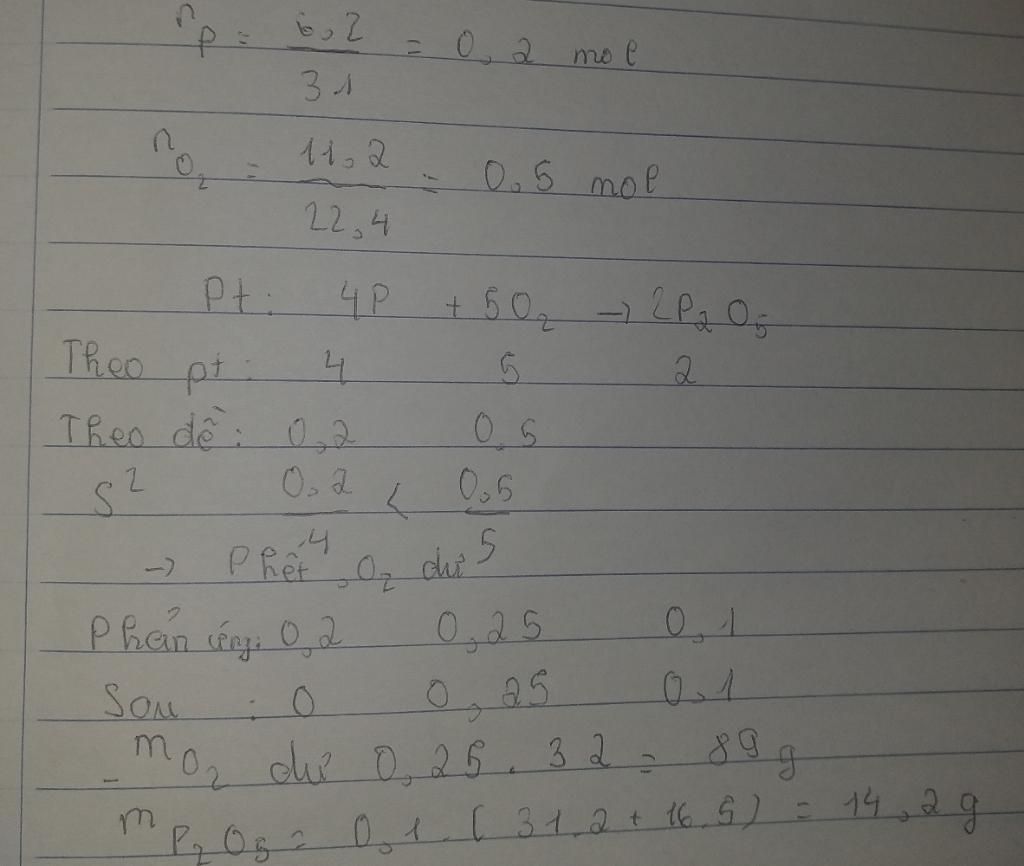 nP = 6,2 / 31 = 0,2 mol
nO2 = 11,2 / 22,4 = 0,5 mol
Pt: 4P + 5O2 → 2P2O5
Theo pt: 4 5 2
Theo dề: 0,2 0,5
S2 0,2/4 < 0,5/5
→ P hết, O2 dư
Phản ứng: 0,2 0,25 0,1
Sau : 0 0,25 0,1
- mO2 dư 0,25 . 32 =
mP2O5 = 0,1 . ( 31.2 + 16.5 ) = 14,2 g